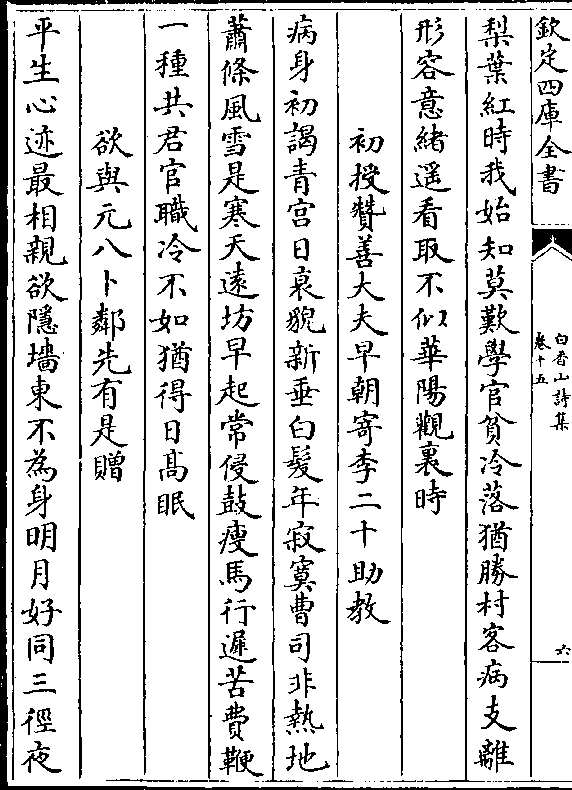 欽定四庫全書
白香山詩集
卷十五
六
梨葉紅時我始知莫歎學官貧冷落猶勝村客病支離
形容意緒遥看取不似華陽觀裏時
初授贊善大夫早朝寄李二十助教
病身初謁青宫日衰貌新垂白髮年寂寞曹司非熱地
蕭條風雪是寒天遠坊早起常侵鼓瘦馬行遲苦費鞭
一種共君官職冷不如猶得日髙眠
欲與元八卜鄰先有是贈
平生心迹最相親欲隱墻東不為身明月好同三徑夜